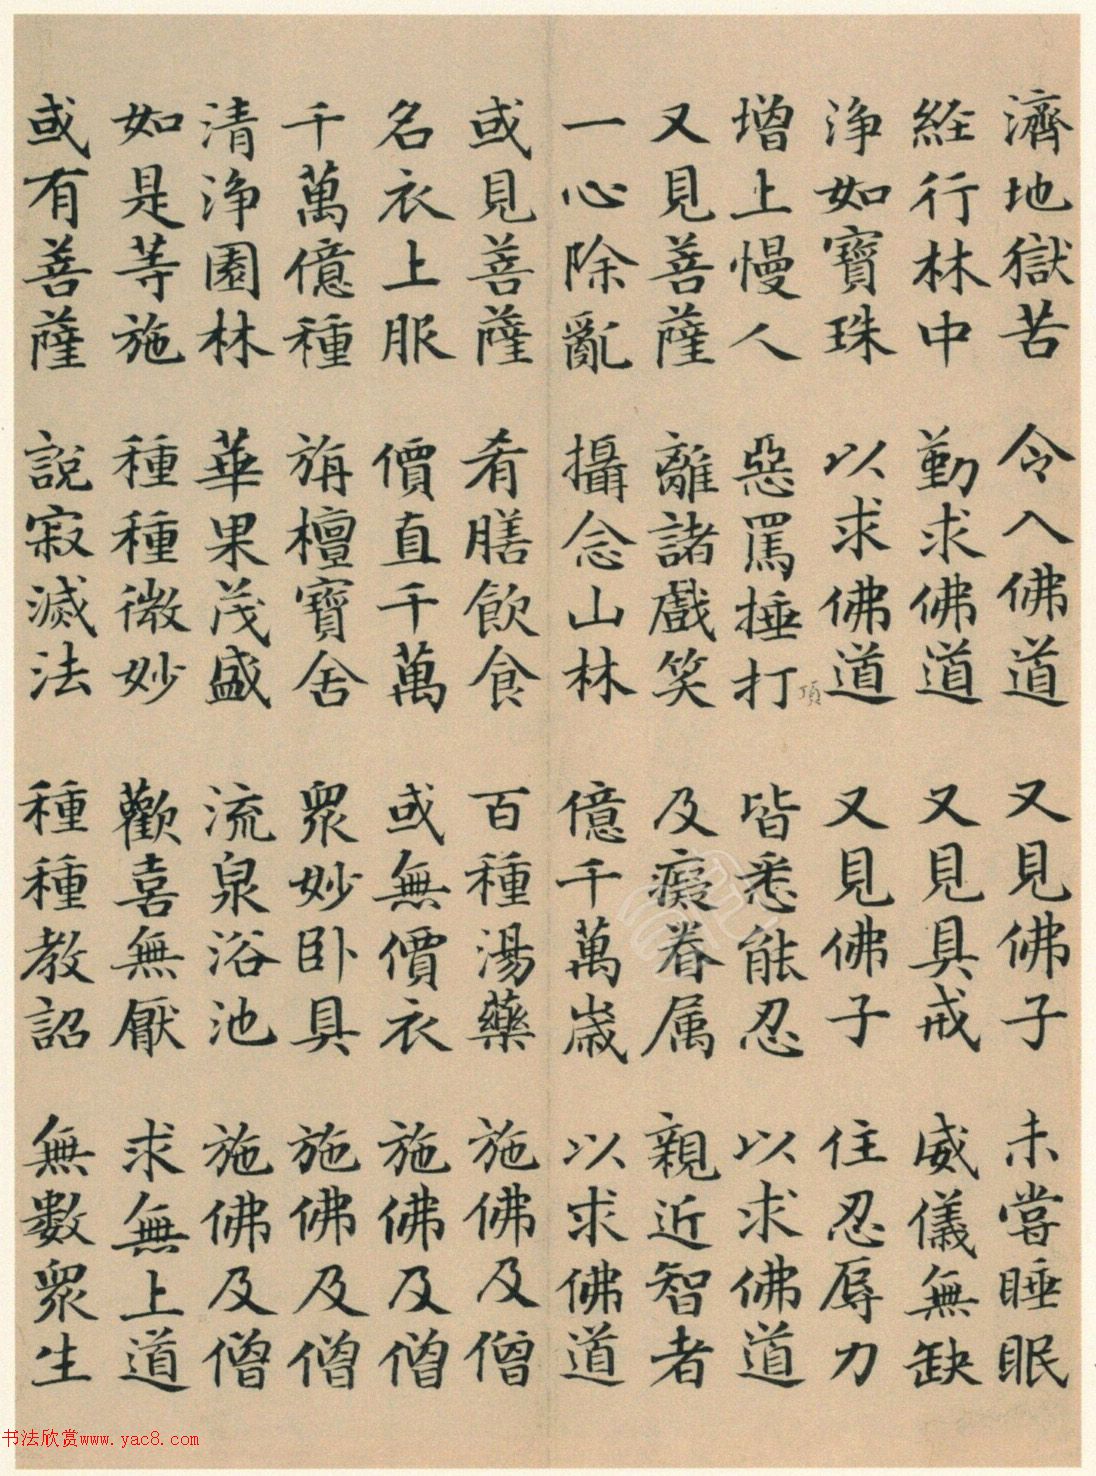 濟地獄苦 令入佛道 又見佛子 未嘗睡眠
経行林中 勤求佛道 又見具戒 威儀無缺
淨如寶珠 以求佛道 又見佛子 住忍辱力
增上慢人 惡罵捶打 皆悉能忍 以求佛道
項
又見菩薩 離諸戲笑 及癡眷属 親近智者
一心除亂 攝念山林 億千萬歲 以求佛道
或見菩薩 肴膳飲食 百種湯藥 施佛及僧
名衣上服 價直千萬 或無價衣 施佛及僧
千萬億種 旃檀寶舍 眾妙卧具 施佛及僧
清淨園林 華果茂盛 流泉浴池 施佛及僧
如是等施 種種微妙 歡喜無厭 求無上道
或有菩薩 說寂滅法 種種教詔 無數眾生
书法欣赏www.yac8.com